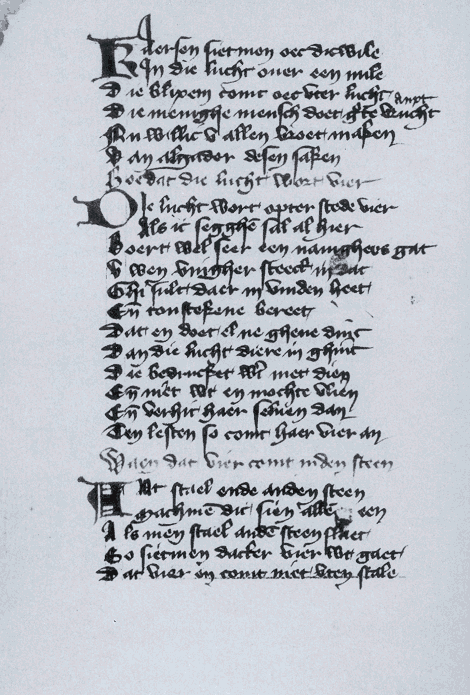 Kaersen sietmen oec dicwile
In die lucht ouer een mile
Die blixem comt oec vter lucht
Die menighe mensch doet grote vrucht anxt
Nu willic v allen vroet maken
Van algader desen saken
Hoe dat die lucht wort vier
Die lucht wort opter stede vier
Als ic segghen sal al hier
Boert wel seer een nauigheers gat
V wen vingher steect in dat
Ghi sult daer in vinden heet
En tonstekene bereet
Dat en doet el ne ghene dinc
Dan die lucht diere in ghinc
Die bedrucket wt met dien
En niet wt en mochte vlien
En verhit haer seluen dan
Ten lesten so comt haer vier an
Waen dat vier comt inden steen
Wt stael ende anden steen
machmen dit sien alle een
Als men stael anden steen slaet
So sietmen dacker vier wt gaet
Dat vier en comt niet vten stale